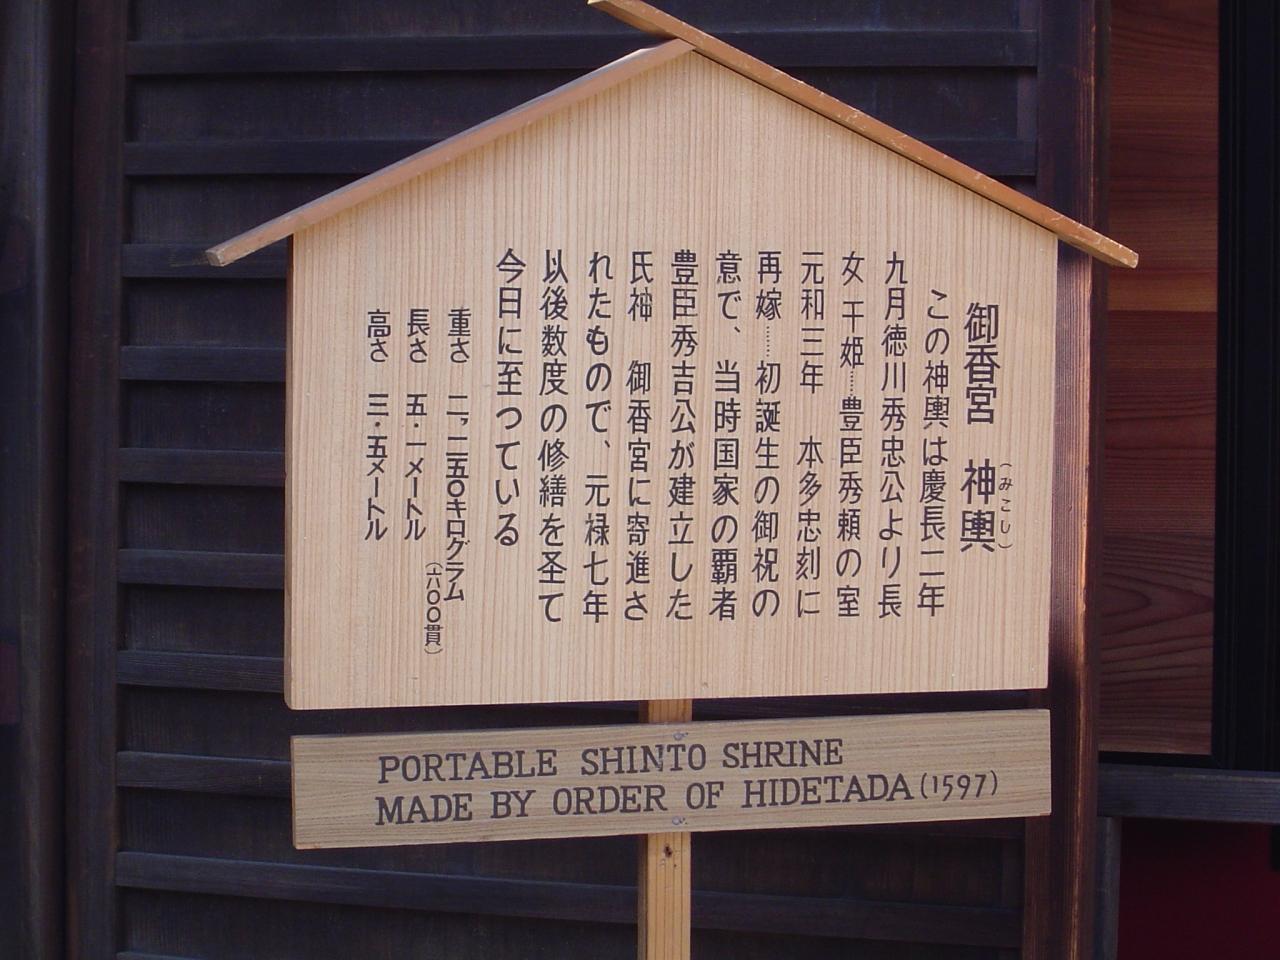 御香宮　神輿
(みこし)
この神輿は慶長二年
九月徳川秀忠公より長
女　千姫……豊臣秀頼の室
元和三年　本多忠刻に
再嫁……初誕生の御祝の
意で、当時国家の覇者
豊臣秀吉公が建立した
氏神　御香宮に寄進さ
れたもので、元禄七年
以後数度の修繕を圣て
今日に至つている
重さ　二,二五〇キログラム
(六〇〇貫)
長さ　五・一メートル
高さ　三・五メートル
PORTABLE SHINTO SHRINE
MADE BY ORDER OF HIDETADA(1597)